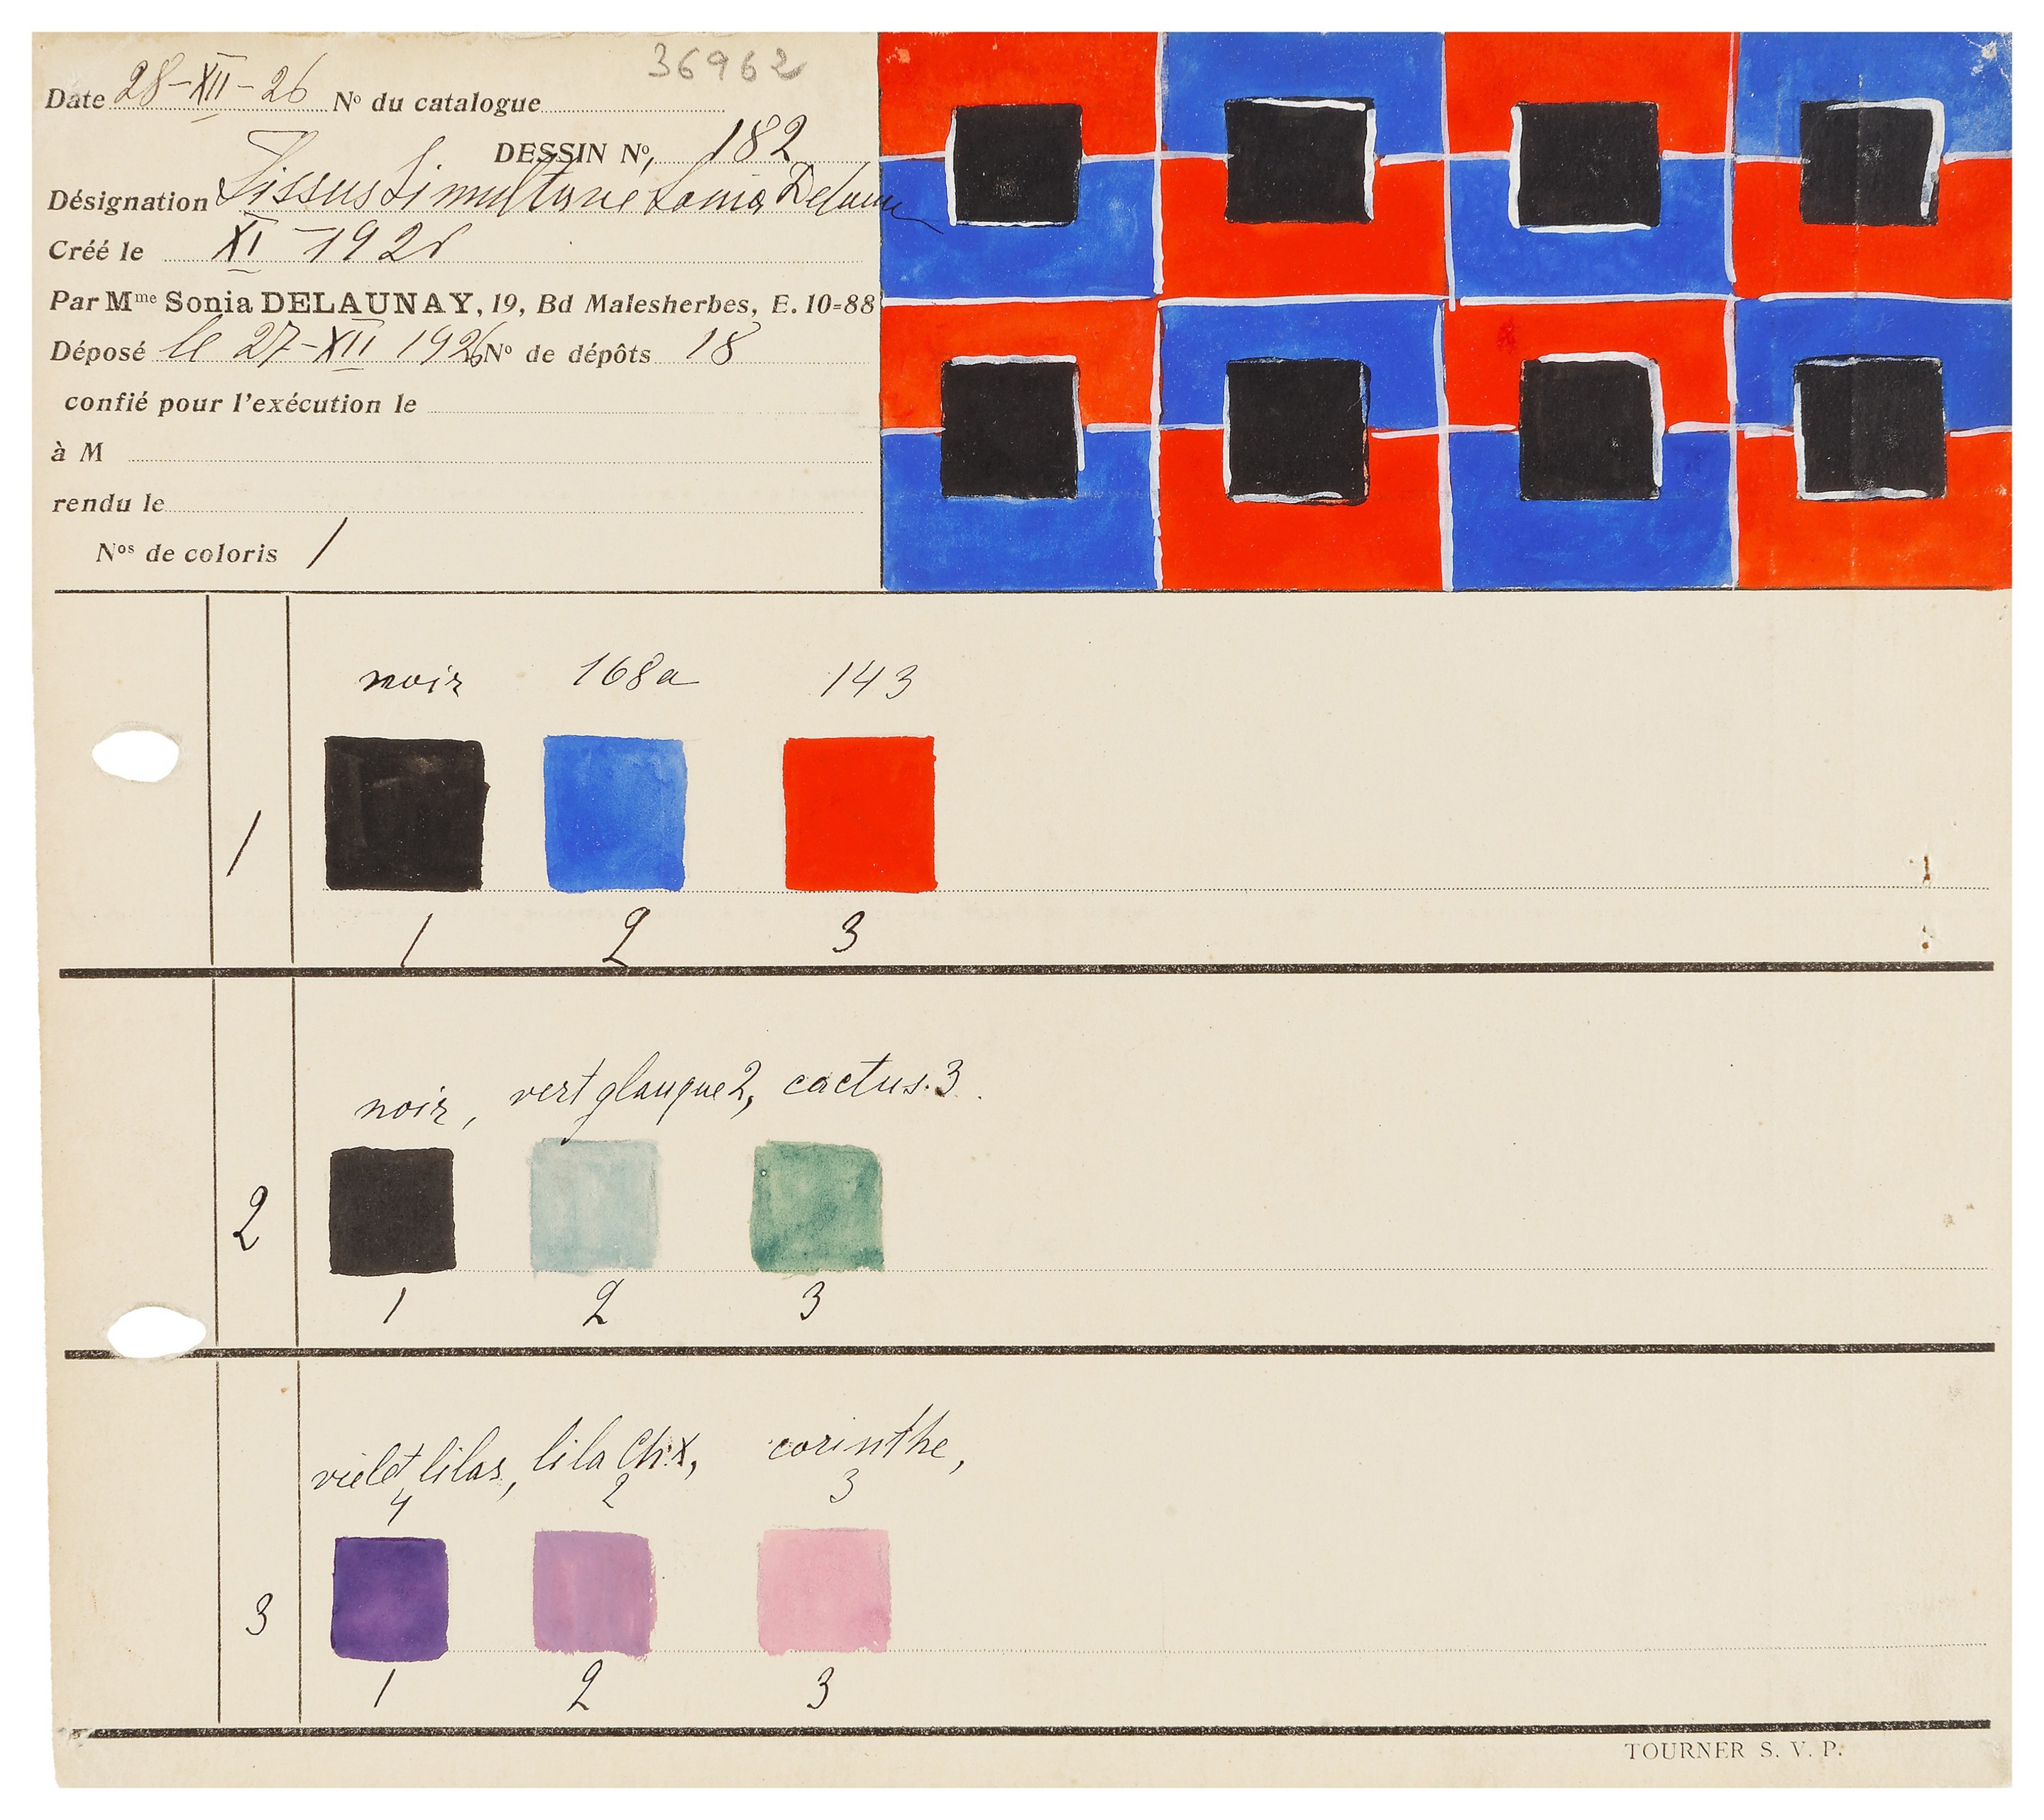 36962
Date 28-XII-26 No du catalogue
DESSIN No, 182
Désignation Tissus Simultané Sonia Delaunay
Créé le XI-1926
Par Mme Sonia DELAUNAY, 19, Bd Malesherbes, E. 10=88
Déposé le 27-XII 1926 No de dépôts 18
confié pour l'exécution le
à M
rendu le
Nos de coloris 1
noir 168a 143
1
1 2 3
noir, vert glauque 2, cactus.3.
2
1 2 3
violet lilas, lila corinthe,
4 2 3
3
1 2 3
TOURNER S. V. P.